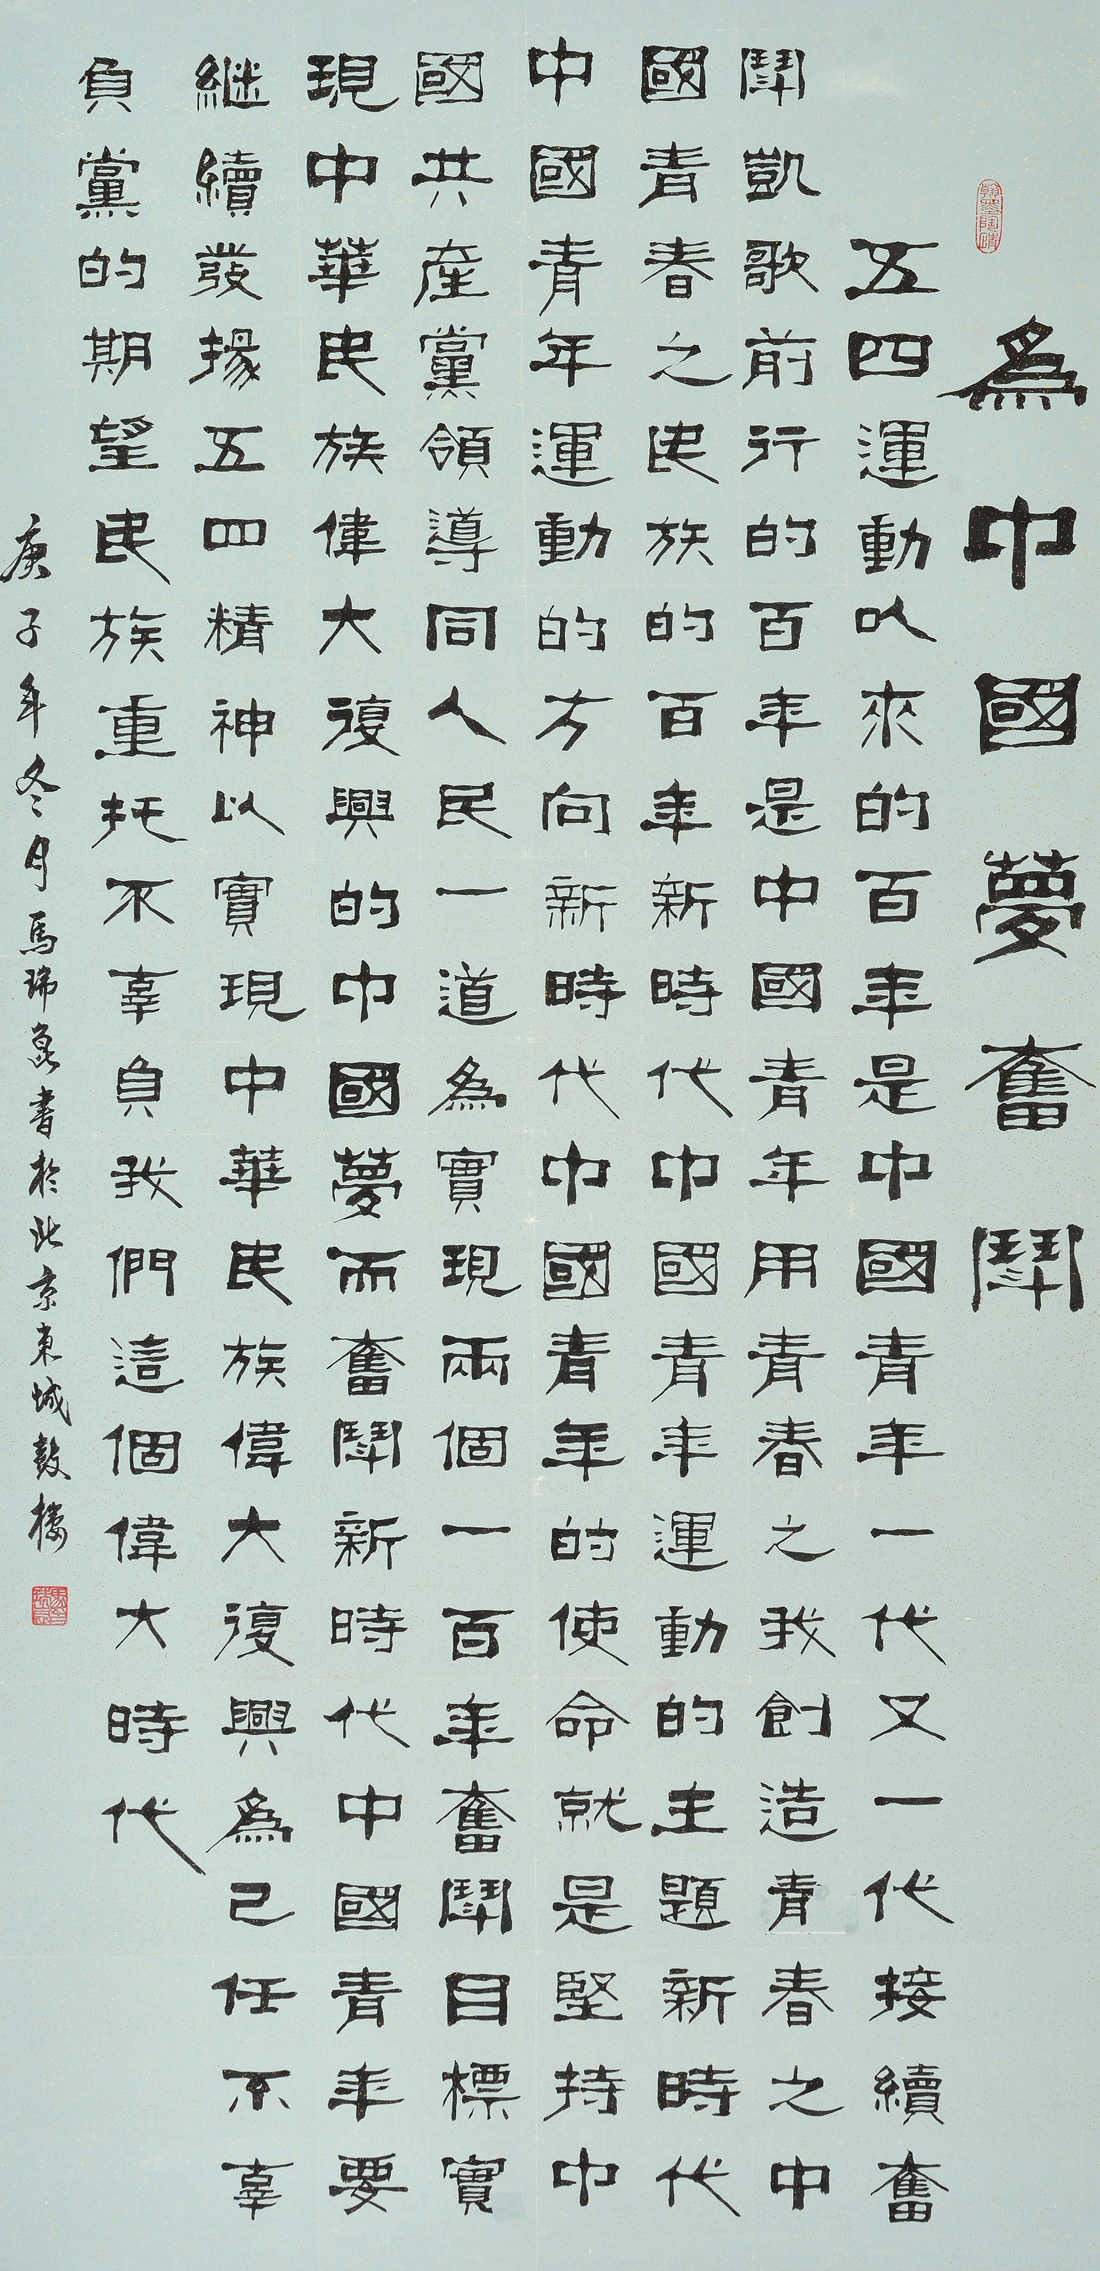 翰墨陶情
為中國夢奮鬥
五四運動以來的百年是中國青年一代又一代接續奮
鬥凱歌前行的百年是中國青年用青春之我創造青春之中
國青春之民族的百年新時代中國青年運動的主題新時代
中國青年運動的方向新時代中國青年的使命就是堅持中
國共產黨領導同人民一道為實現兩個一百年奮鬥目標實
現中華民族偉大復興的中國夢而奮鬥新時代中國青年要
継續發揚五四精神以實現中華民族偉大復興為己任不辜
負黨的期望民族重托不辜負我們這個偉大時代
庚子年冬月馬瑞書於北京東城鼓樓